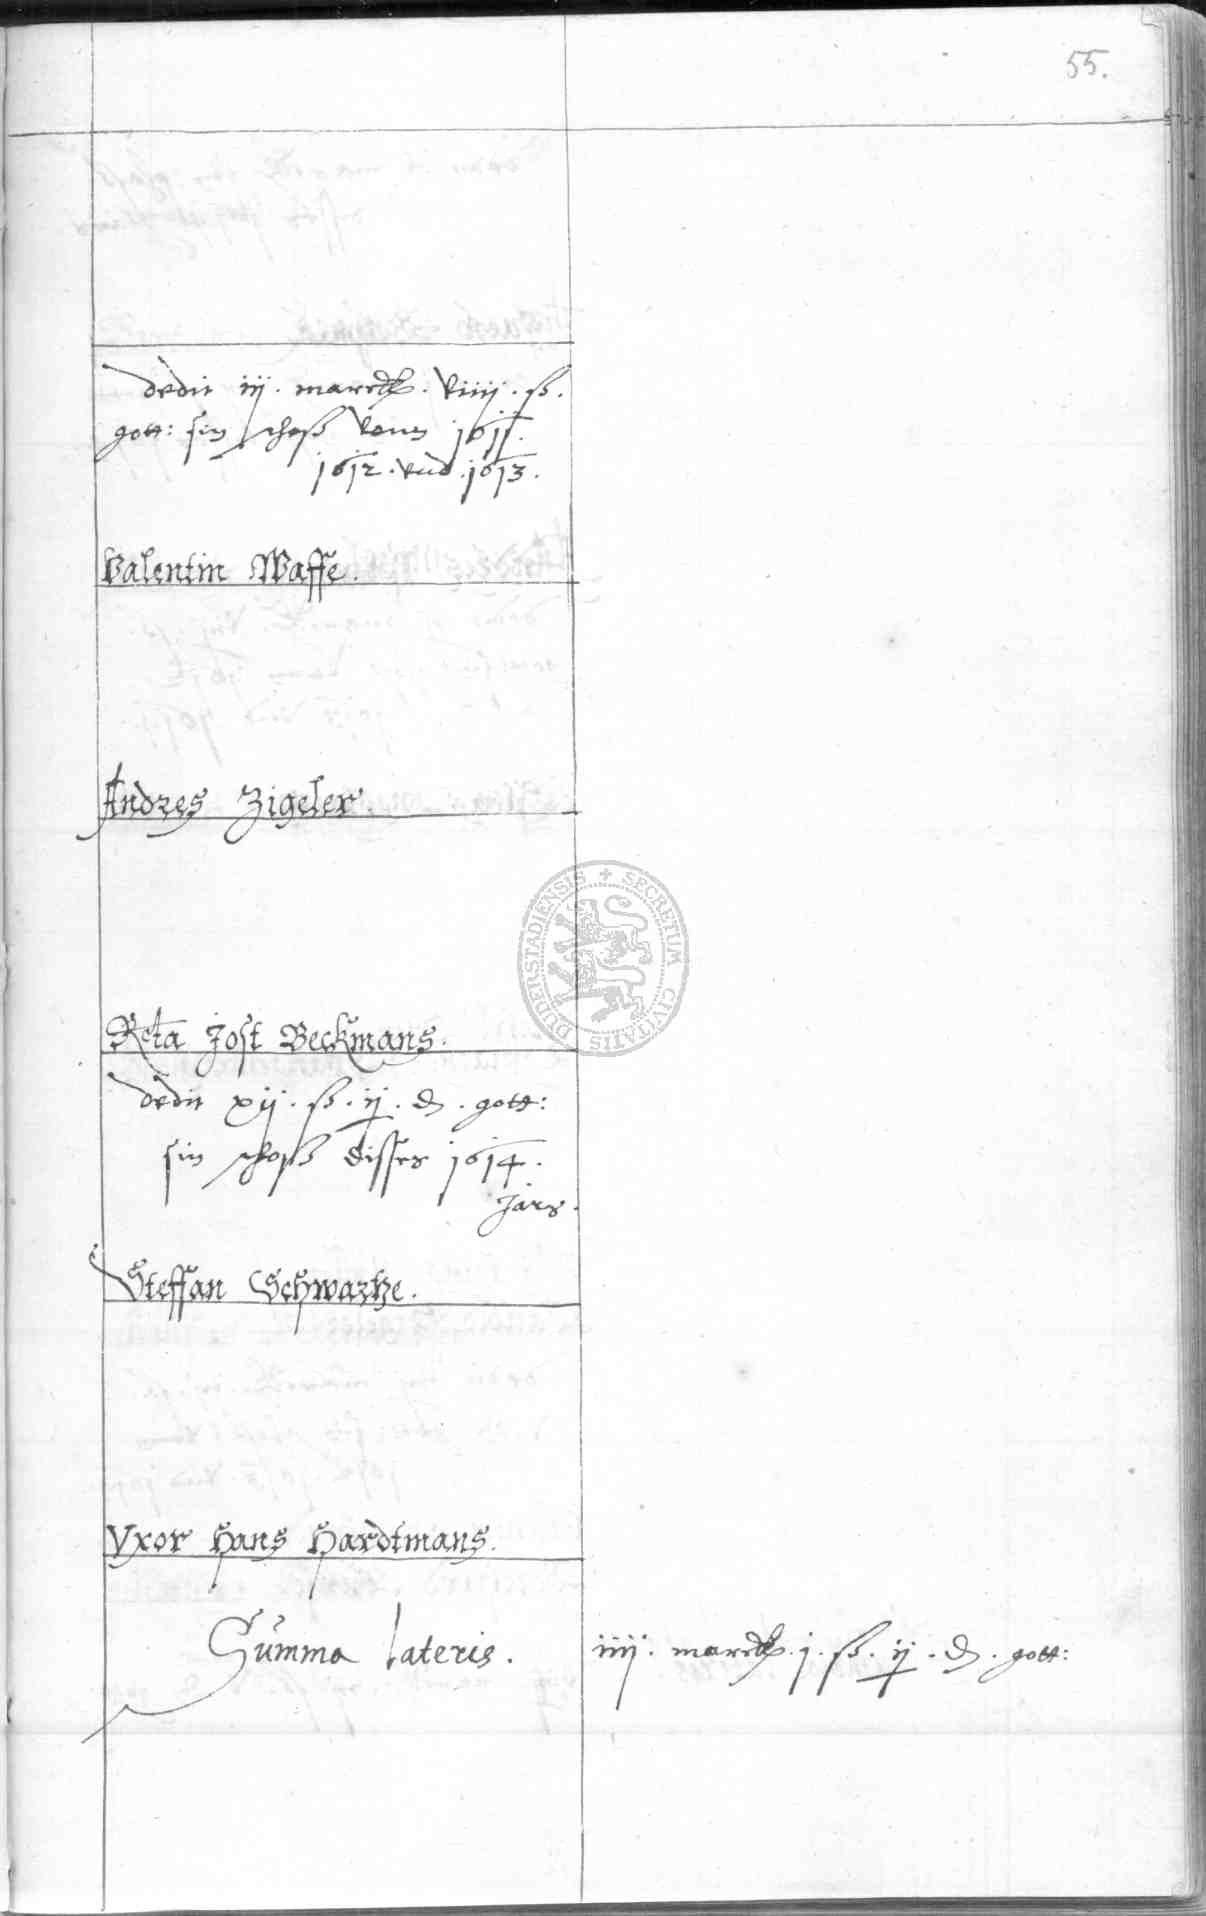 55.
dedit iij. marck. viiij. ß.
gott: sin schoß vonn 1611.
1612. vnd. 1613.
Valentin Waffe.
Andres Zigeler.
Relta Jost Beckmans.
dedit xij. ß. ij. d. gott:
sin schoß disses 1614.
Jars.
Steffan Schwartze.
Vxor Hans Hardtmans.
Summa lateris. iiij. marck. j. ß. ij. d. gott:
DUDERSTADIENSIS + SECRETUM CIVITATIS